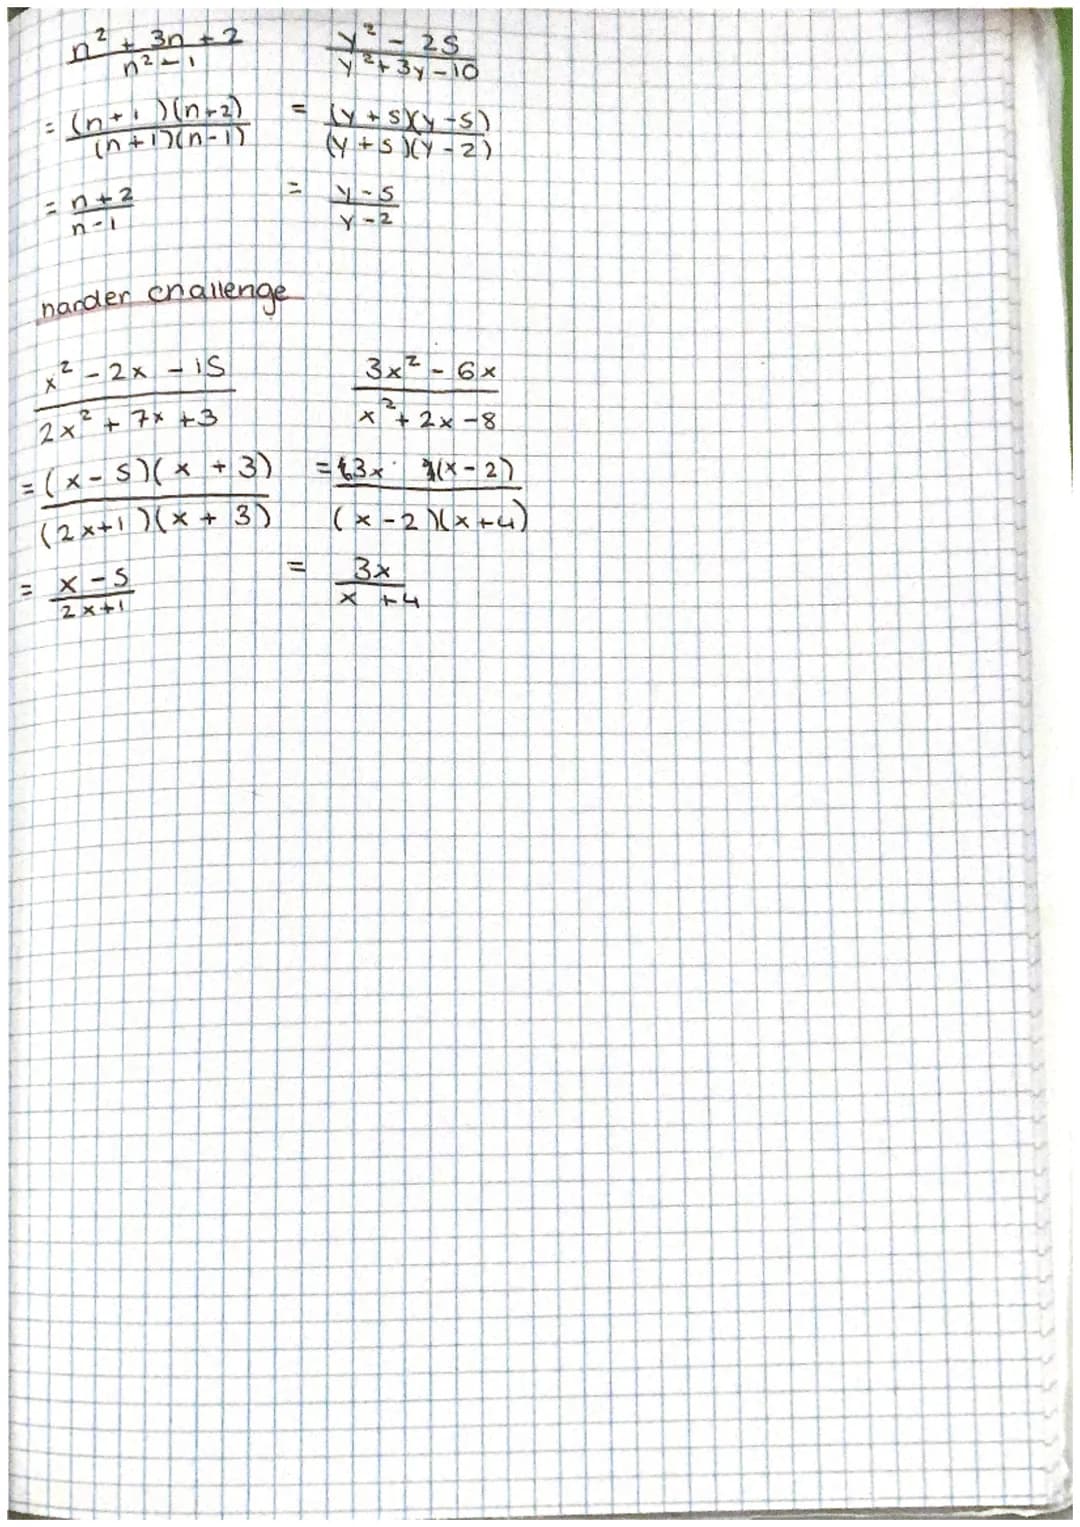 n² + 3n + 2
n² - 1
= (n+1)(n+2)
(n+1)(n-1)
= n+2
n-1
y² - 25
y² + 3y - 10
= (y+5)(y-5)
(y+5)(y-2)
= y-5
y-2
harder challenge
x² - 2x - 15
2x² + 7x + 3
= (x-5)(x+3)
(2x+1)(x+3)
= x-5
2x+1
3x² - 6x
x² + 2x - 8
= 3x (x-2)
(x-2)(x+4)
= 3x
x+4